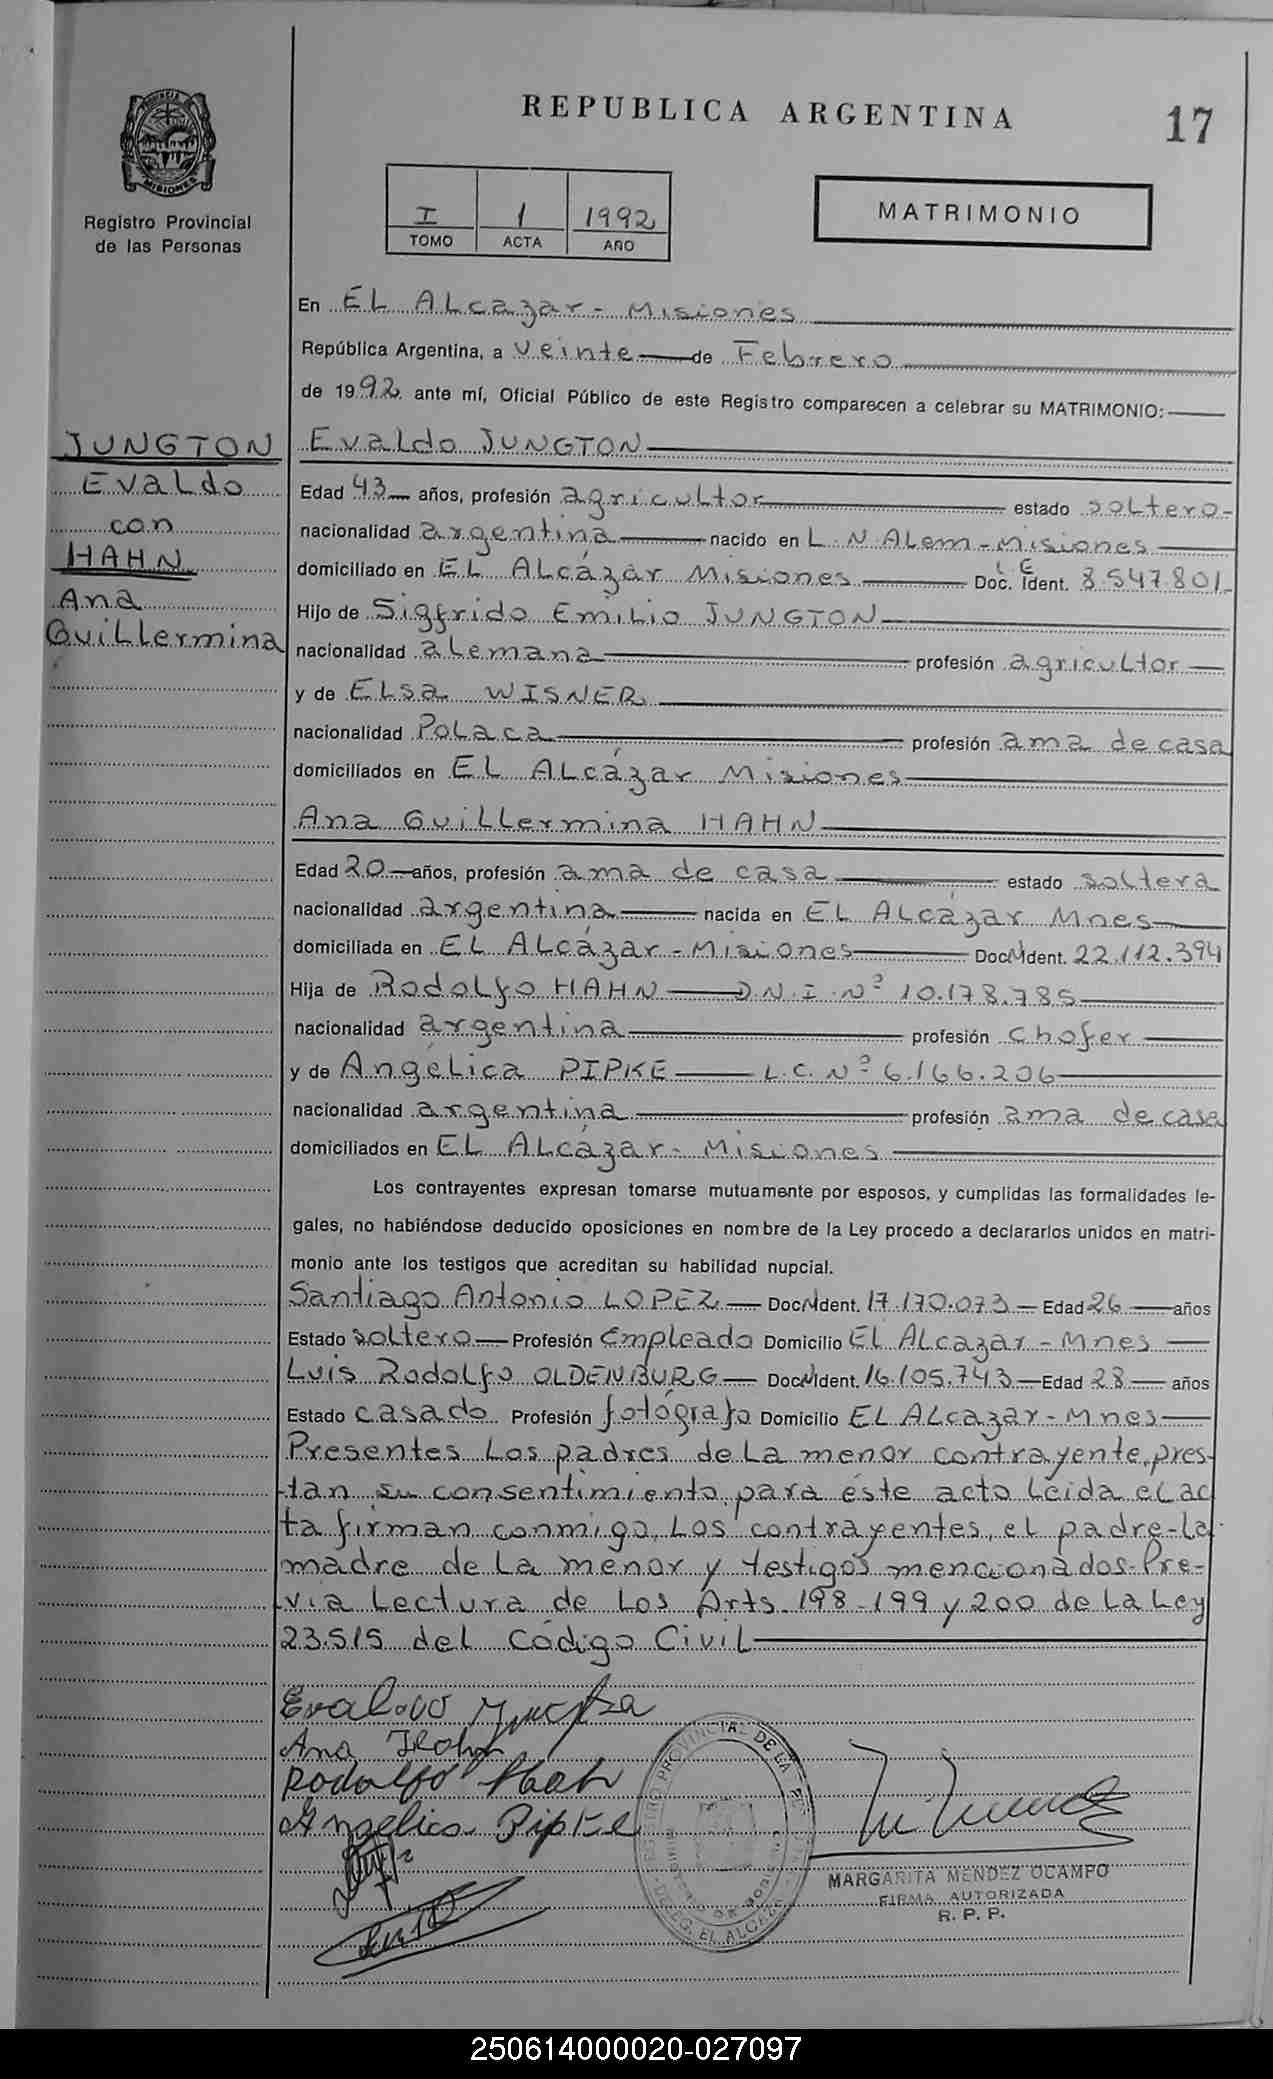 REPUBLICA ARGENTINA
17
PROVINCIA DE
MISIONES
Registro Provincial
de las Personas
I 1 1992
TOMO ACTA AÑO
MATRIMONIO
En EL ALcazar - Misiones
República Argentina, a veinte de Febrero
de 1992 ante mí, Oficial Público de este Registro comparecen a celebrar su MATRIMONIO:
JUNGTON
Evaldo
con
HAHN
Ana
Guillermina
Evaldo JUNGTON
Edad 43 años, profesión agricultor estado soltero-
nacionalidad argentina nacido en L.N.Alem-Misiones
domiciliado en EL ALcázar Misiones Doc. Ident. L E 8.547.801
Hijo de Sigfrido Emilio JUNGTON
nacionalidad alemana profesión agricultor
y de ELsa WISNER
nacionalidad Polaca profesión ama de casa
domiciliados en EL ALcázar Misiones
Ana Guillermina HAHN
Edad 20 años, profesión ama de casa estado soltera
nacionalidad argentina nacida en EL ALcázar Mnes
domiciliada en EL ALcázar-Misiones Doc.Ident. 22.112.394
Hija de Rodolfo HAHN D.N.I.Nº 10.178.785
nacionalidad argentina profesión chofer
y de Angélica PIPKE L.C.Nº 6.166.206
nacionalidad argentina profesión ama de casa
domiciliados en EL ALcázar- Misiones
Los contrayentes expresan tomarse mutuamente por esposos, y cumplidas las formalidades le-
gales, no habiéndose deducido oposiciones en nombre de la Ley procedo a declararlos unidos en matri-
monio ante los testigos que acreditan su habilidad nupcial.
Santiago Antonio LOPEZ Doc.Ident. 17.170.073 Edad 26 años
Estado soltero Profesión Empleado Domicilio EL ALcazar-Mnes
Luis Rodolfo OLDENBURG Doc.Ident. 16.105.743 Edad 28 años
Estado casado Profesión fotógrafo Domicilio EL ALcazar-Mnes
Presentes Los padres de La menor contrayente, pres-
tan su consentimiento para éste acto Leida el ac
ta firman conmigo, Los contrayentes, el padre-La
madre de La menor y testigos mencionados-Pre-
via Lectura de Los Arts.198-199 y 200 de La Ley
23.515 del Código Civil
Ana Hahn
Rodolfo Hahn
Angelica Pipke
REGISTRO PROVINCIAL DE LAS PERSONAS
DELEG. EL ALCAZAR
MARGARITA MENDEZ OCAMPO
FIRMA AUTORIZADA
R. P. P.
250614000020-027097